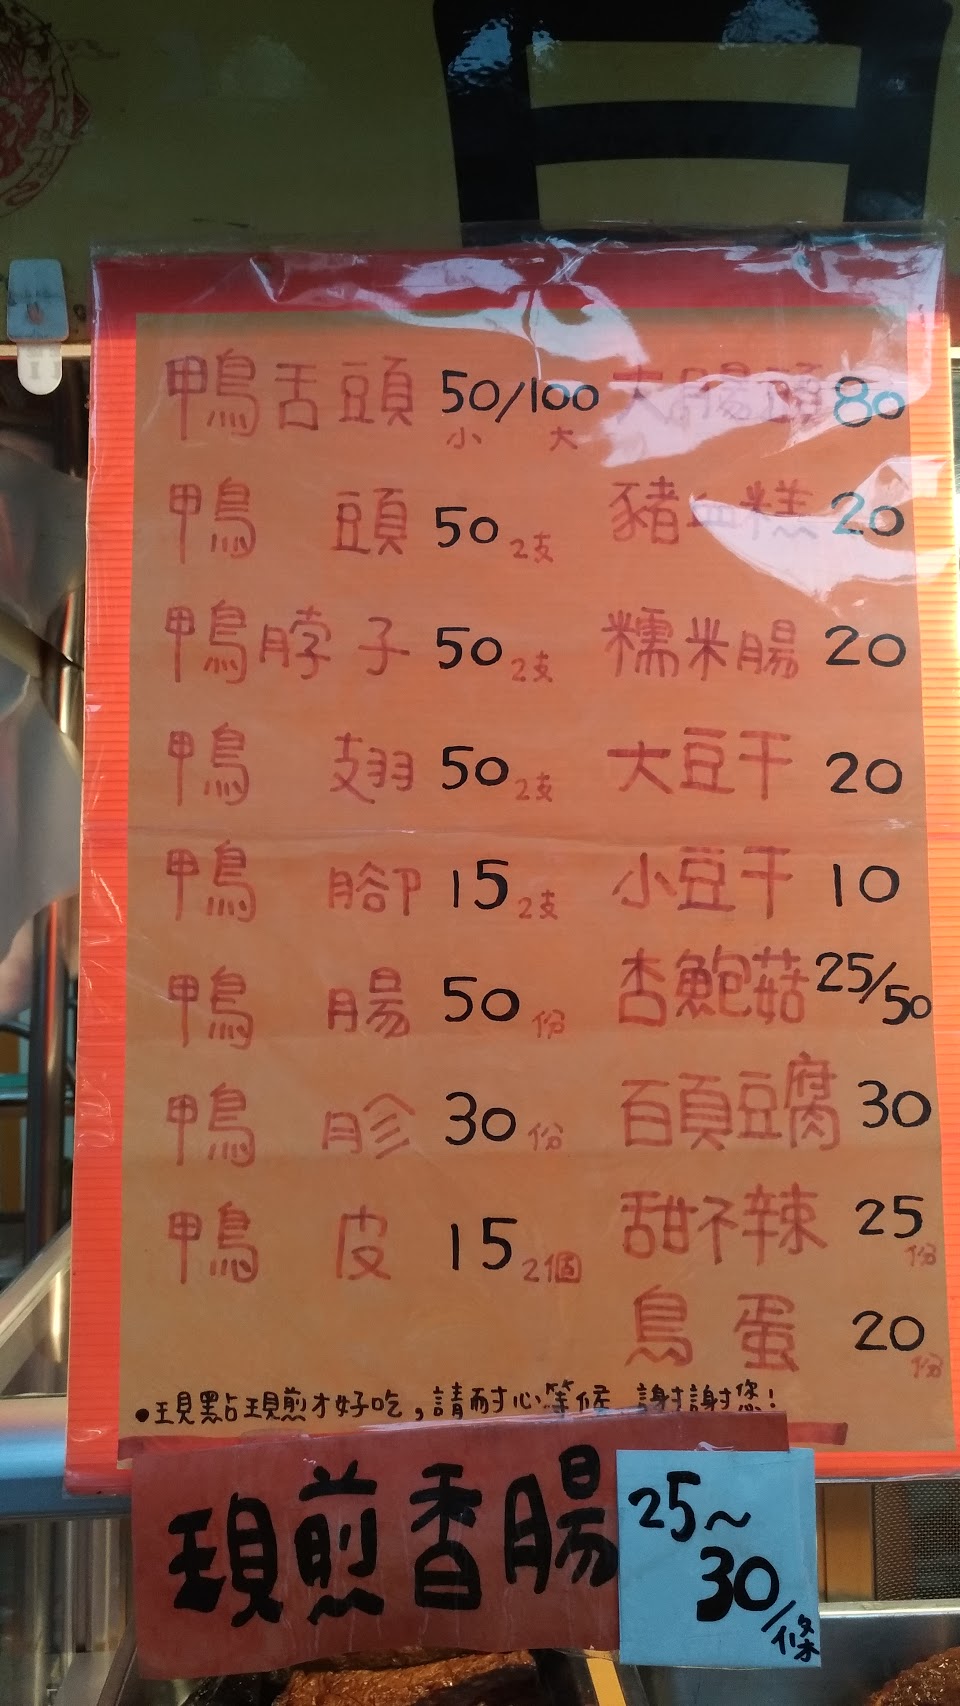 鴨舌頭 50/100
小 大
鴨頭 50 2支
鴨脖子 50 2支
鴨翅 50 2支
鴨腳 15 2支
鴨腸 50 份
鴨胗 30 份
鴨皮 15 2個
大腸頭 80
豬血糕 20
糯米腸 20
大豆干 20
小豆干 10
杏鮑菇 25/50
百頁豆腐 30
甜不辣 25 份
鳥蛋 20 份
•現點現煎才好吃,請耐心等候 謝謝您!
現煎香腸 25~
30/條